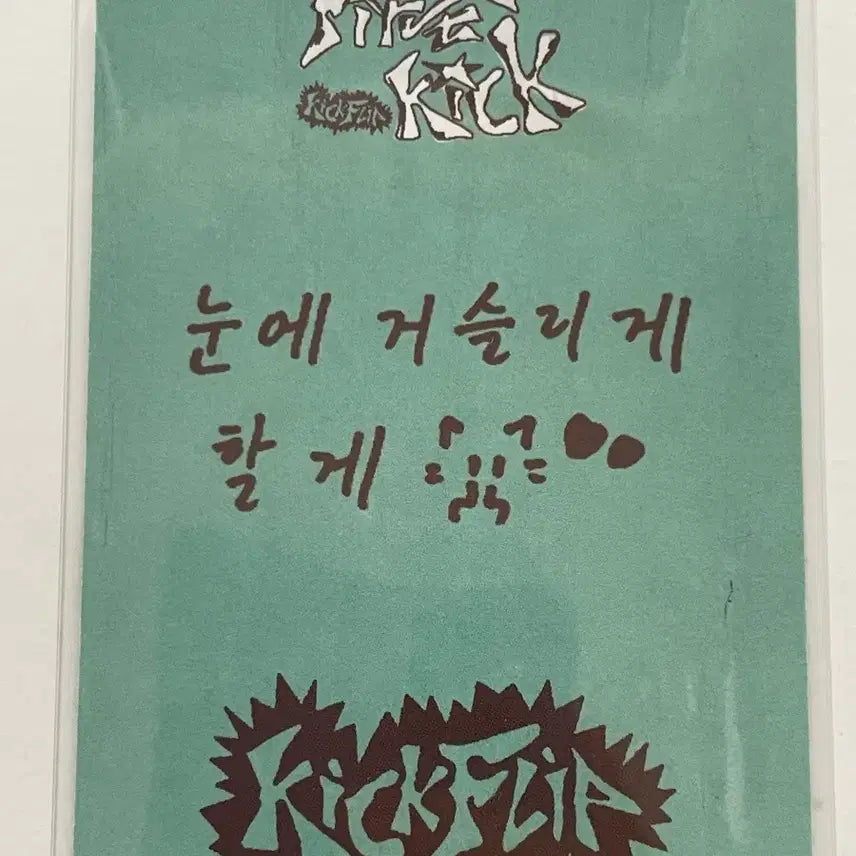 KicK
KickFlip
눈에 거슬리게
할게
KickFlip